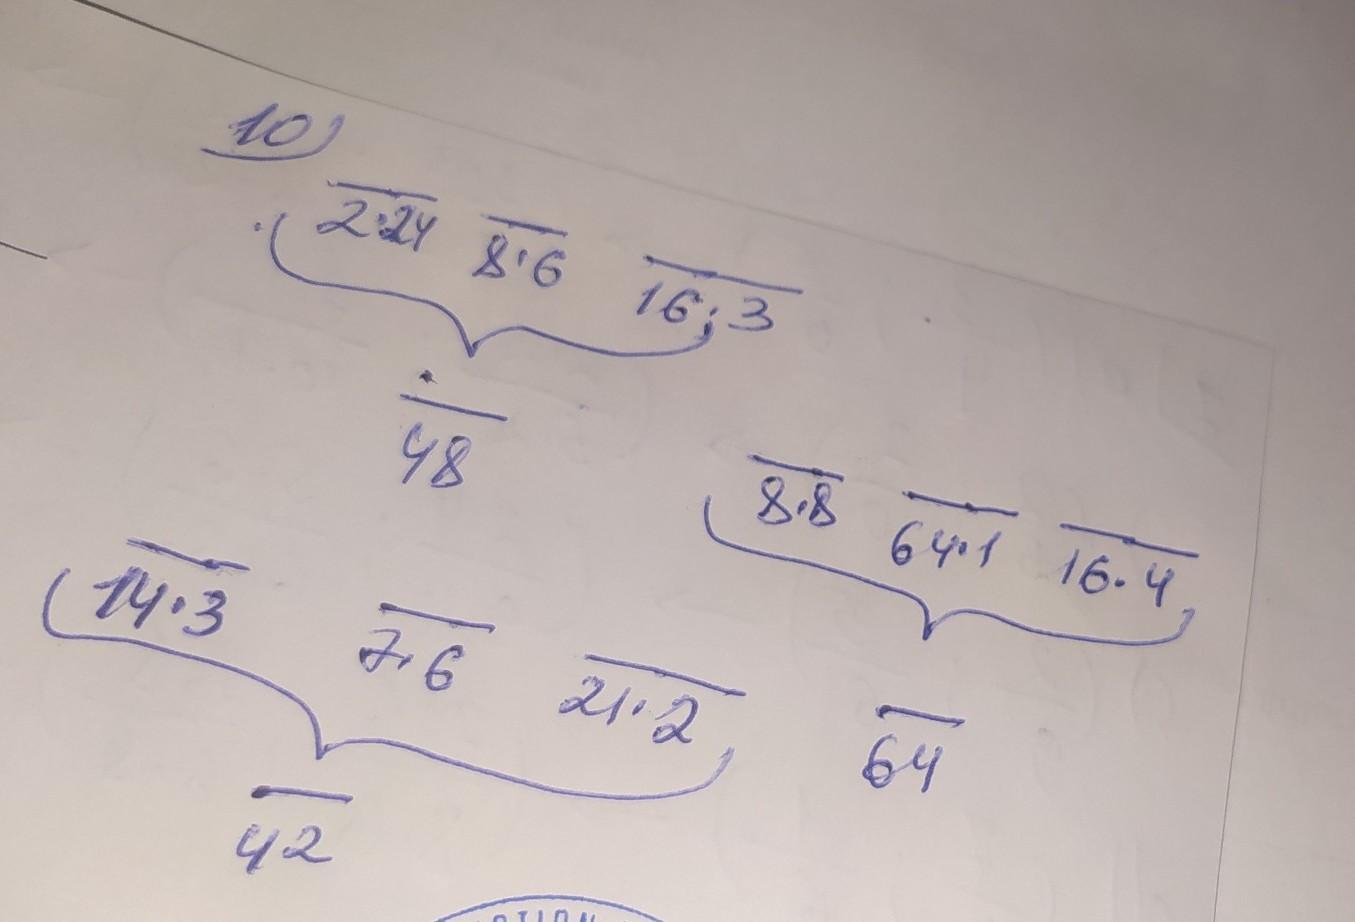 10)
2·24 8·6 16·3
48
8·8 64·1 16·4
64
14·3 7·6 21·2
42